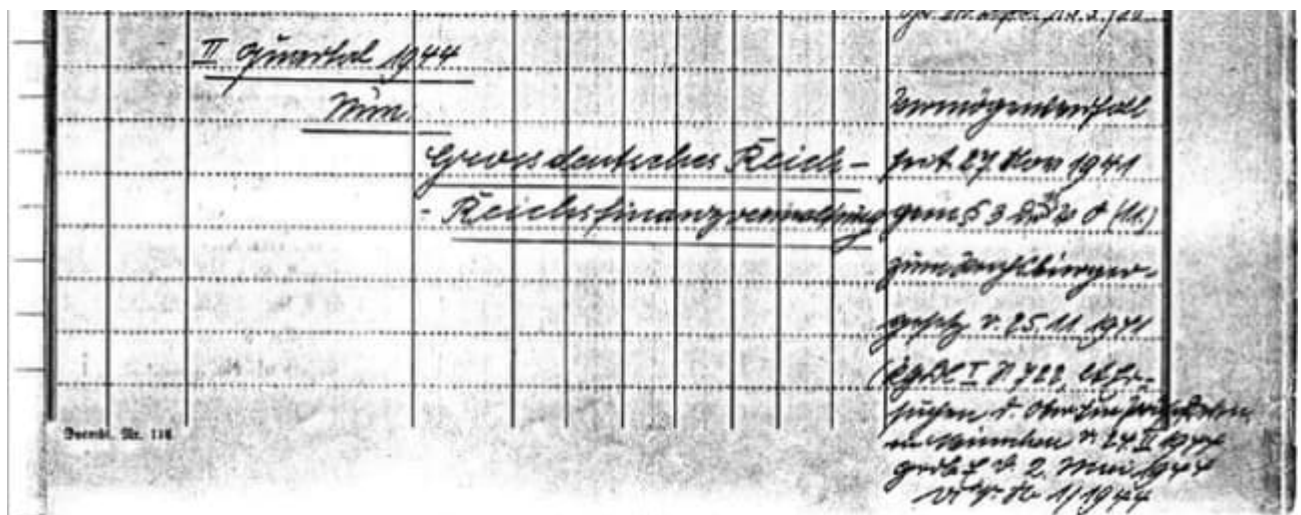 II Quartal 1944
Nun:
Grossdeutsches Reich –
- Reichsfinanzverwaltung
Vermögensverfall
seit 27. Nov 1941
gem § 3 d. VO (11.)
zum Reichsbürger-
gesetz v. 25.11.1941
(RGBl I S 722, Ersu-
suchen d. Oberfinanzpräsidenten
in München v. 24. II 1944
2. Mai 1944
1/1944
Vermt. Nr. 116